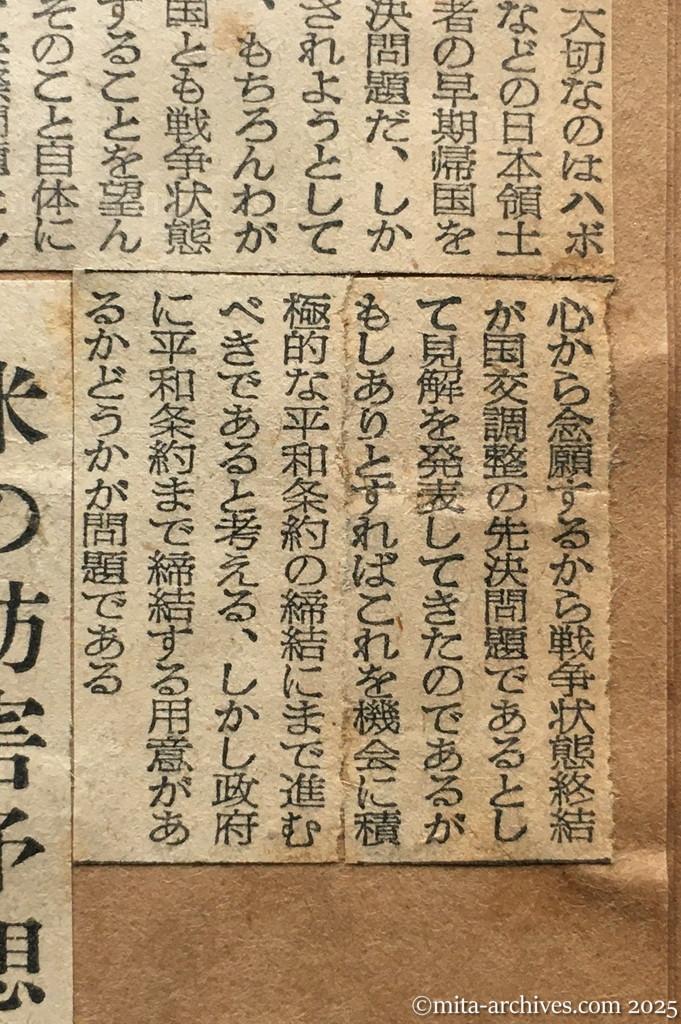 大切なのはハボ
などの日本領土
者の早期帰国を
決問題だ、しか
されようとして
、もちろんわが
国とも戦争状態
することを望ん
そのこと自体に
心から念願するから戦争状態終結
が国交調整の先決問題であるとし
て見解を発表してきたのであるが
もしありとすればこれを機会に積
極的な平和条約の締結にまで進む
べきであると考える、しかし政府
に平和条約まで締結する用意があ
るかどうかが問題である
米の妨害予想
©mita-archives.com 2025